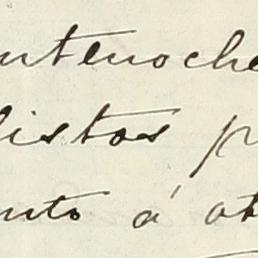 antenoche
listos p
nto á at